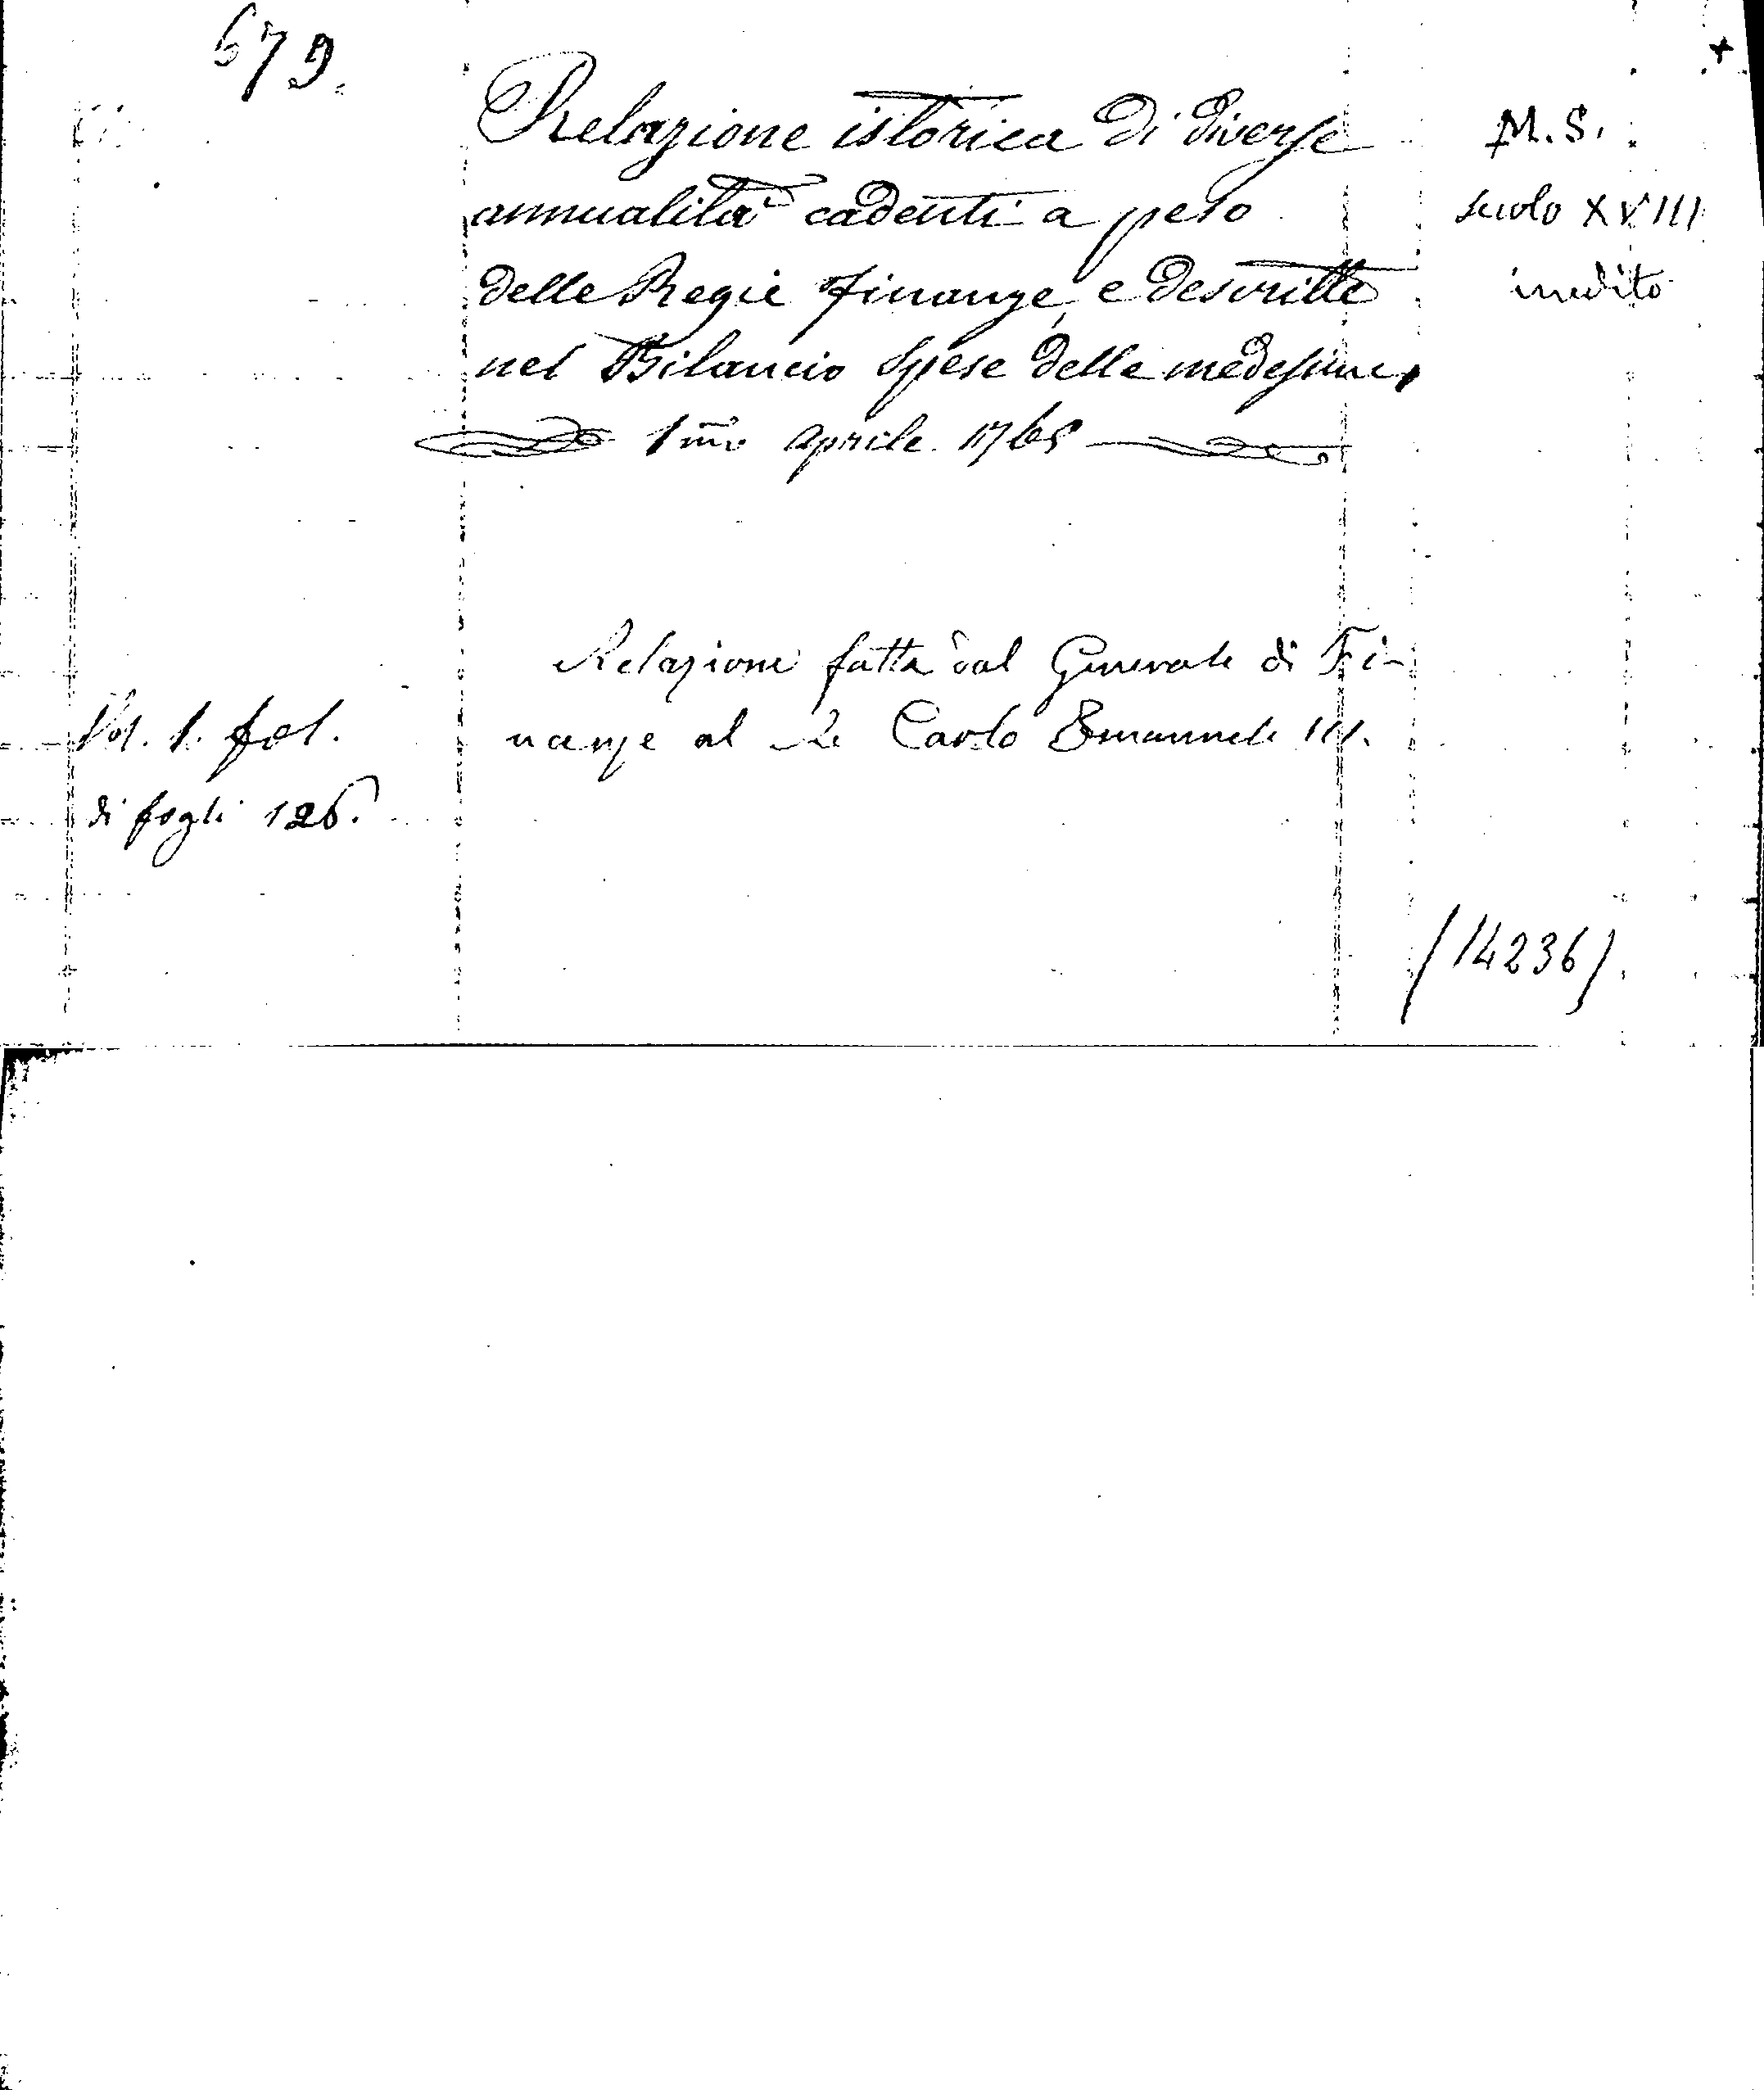 679.
Relazione istorica di diverse
annualità cadenti a peso
delle Regie finanze, e descritte
nel Bilancio spese delle medesime,
1mo Aprile 1765
M.S.
secolo XVIII
inedito
Relazione fatta dal Generale di Fi-
nanze al Re Carlo Emanuele III.
Vol. 1. fol.
di fogli 126.
(14236)